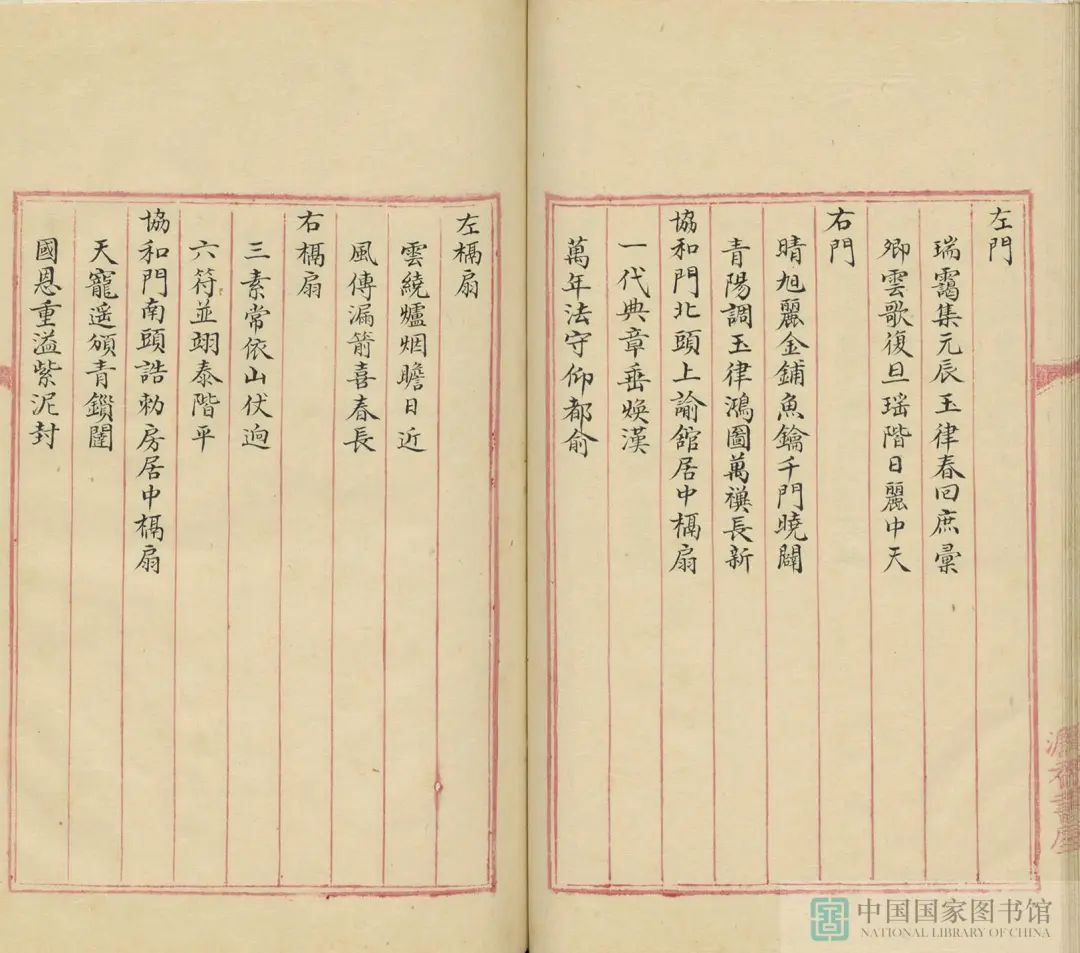 左門
瑞靄集元辰玉律春回庶彙
卿雲歌復旦瑶階日麗中天
右門
晴旭麗金鋪魚鑰千門曉闢
青陽調玉律鴻圖萬禩長新
協和門北頭上諭館居中槅扇
一代典章垂煥漢
萬年法守仰都俞
左槅扇
雲繞爐烟瞻日近
風傳漏箭喜春長
右槅扇
三素常依山仗迥
六符並翊泰階平
協和門南頭誥勑房居中槅扇
天寵遥頒青鎖闥
國恩重溢紫泥封
中国国家图书馆
NATIONAL LIBRARY OF CHINA